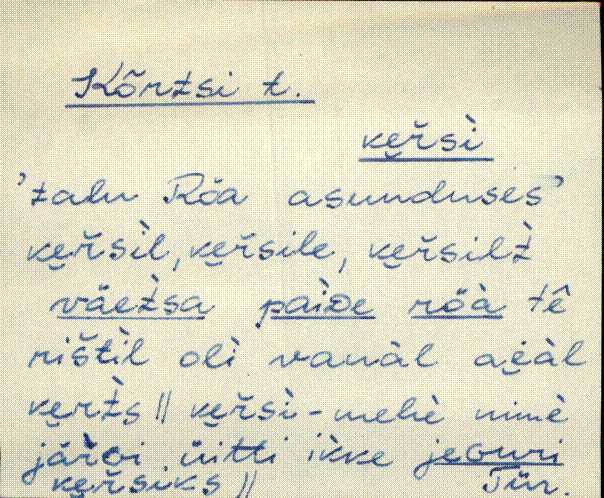 Kõrtsi t.
ke̮ŕsì
'talu Röa asunduses'
ke̮ŕsìl, ke̮ŕsile, ke̮ŕsilt̀
väet̀sa paìDe röà tê
rišt̀il olì vanàl ae̮àl
ke̮rt̀s || ke̮ŕsì-mehè nimè
järGi üitti ikke jeGuri
ke̮ŕsiks || Tür.